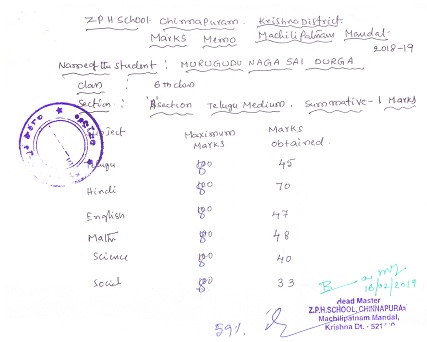 Z.P.H School Chinnapuram. Krishna District
Marks Memo Machilipatnam Mandal.
2018-19
Name of the Student : MURUGUDU NAGA SAI DURGA
Class : 6th class
Section : A section Telugu Medium. Summative-1 Marks
Maximum Marks
Marks obtained.
Telugu 45
Hindi 70
English 47
Maths 48
Science 40
Social 33
18/02/2019
59%.
Head Master
Z.P.H.SCHOOL, CHINNAPURAM
Machilipatnam Mandal,
Krishna Dt. - 521